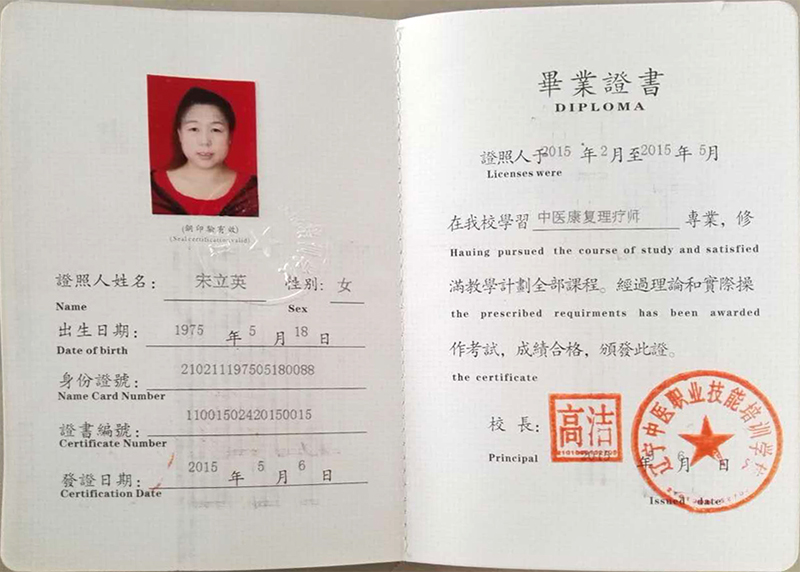 (鋼印驗有效)
(Seal certificate valid)
證照人姓名: 宋立英 性别: 女
Name Sex
出生日期: 1975 年 5 月 18 日
Date of birth
身份證號: 210211197505180088
Name Card Number
證書編號: 11001502420150015
Certificate Number
發證日期: 2015 年 5 月 6 日
Certification Date
畢業證書
DIPLOMA
證照人于2015 年2月至2015年5月
Licenses were
在我校學習 中医康复理疗师 專業，修
Hauing pursued the course of study and satisfied
滿教學計劃全部課程。經過理論和實際操
the prescribed requirments has been awarded
作考試，成績合格，頒發此證。
the certificate
校長: 高洁
Principal 2015 年 6 月 日
Issued date
辽宁中医职业技能培训学校